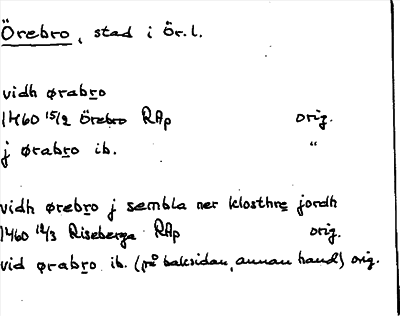 Örebro, stad i Ör.l.
vidh ørabro
1460 15/2 Örebro RAp orig.
j ørabro ib. "
vidh ørebro j sembla ner klosthrs jordh
1460 12/3 Riseberga RAp orig.
vid ørabro ib. (på baksidan, annan hand) orig.